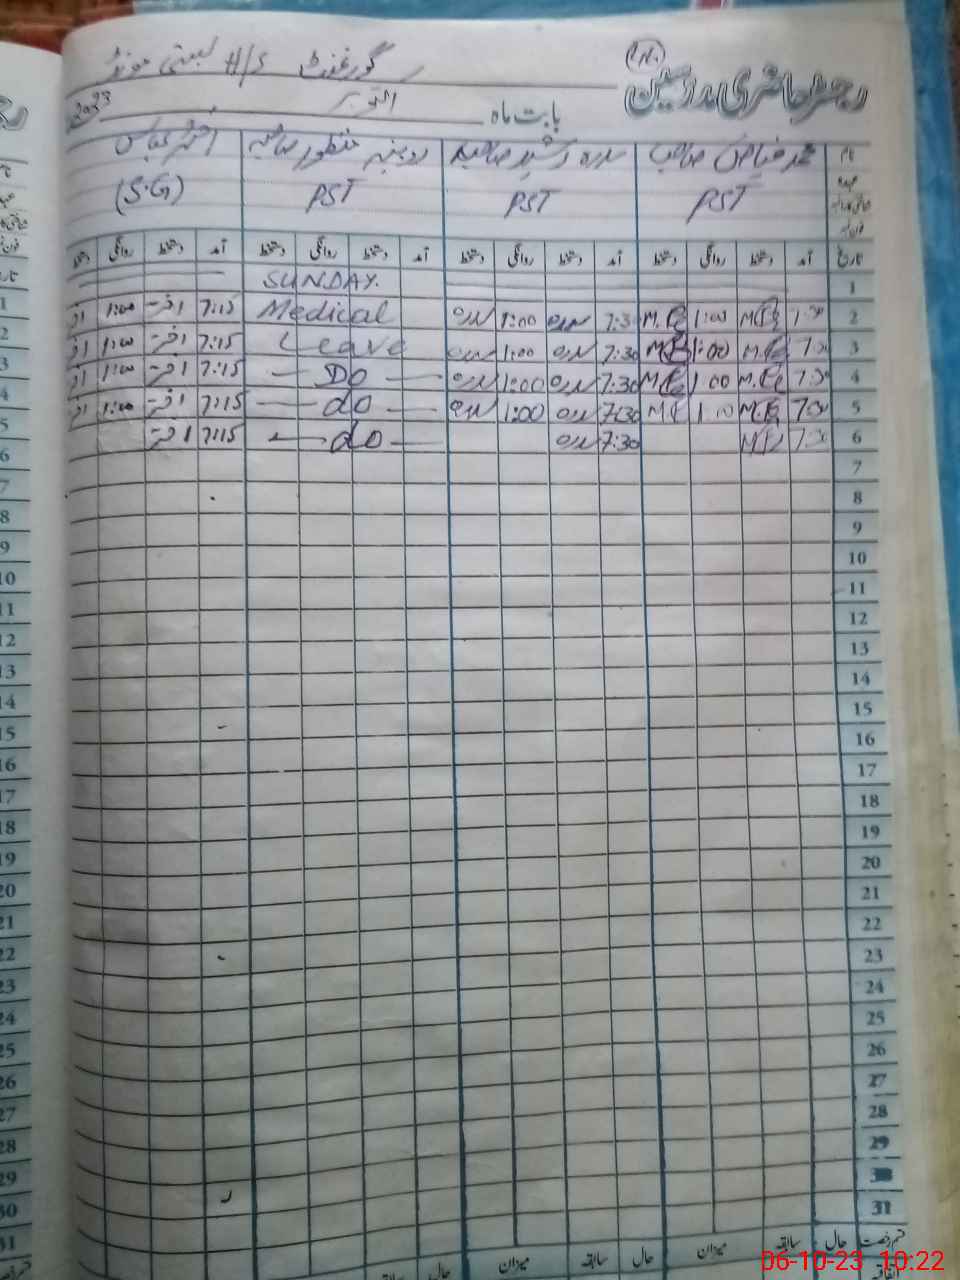 رجسٹر حاضری مدرسین
گورنمنٹ H/S بستی
بابت ماہ اکتوبر 2023
نام
محمد فیاض صاحب
سدرہ رشید صاحبہ
روبینہ منظور صاحبہ
اختر عباس
عہدہ
PST
PST
PST
(S.G)
تاریخ آمد دستخط روانگی دستخط آمد دستخط روانگی دستخط آمد دستخط روانگی دستخط آمد دستخط روانگی دستخط
1 SUNDAY.
2 M.F 1:00 M.F 7:30 سدرہ 1:00 سدرہ Medical 7:15 اختر 1:00
3 M.F 1:00 M.F 7:30 سدرہ 1:00 سدرہ Leave 7:15 اختر 1:00
4 M.F 1:00 M.F 7:30 سدرہ 1:00 سدرہ — DO — 7:15 اختر 1:00
5 7:30 سدرہ 1:00 سدرہ — do — 7:15 اختر 1:00
6 7:30 سدرہ — do — 7:15 اختر
7
8
9
10
11
12
13
14
15
16
17
18
19
20
21
22
23
24
25
26
27
28
29
30
31
قسم رخصت حال سابقہ میزان حال سابقہ میزان حال سابقہ
06-10-23 10:22